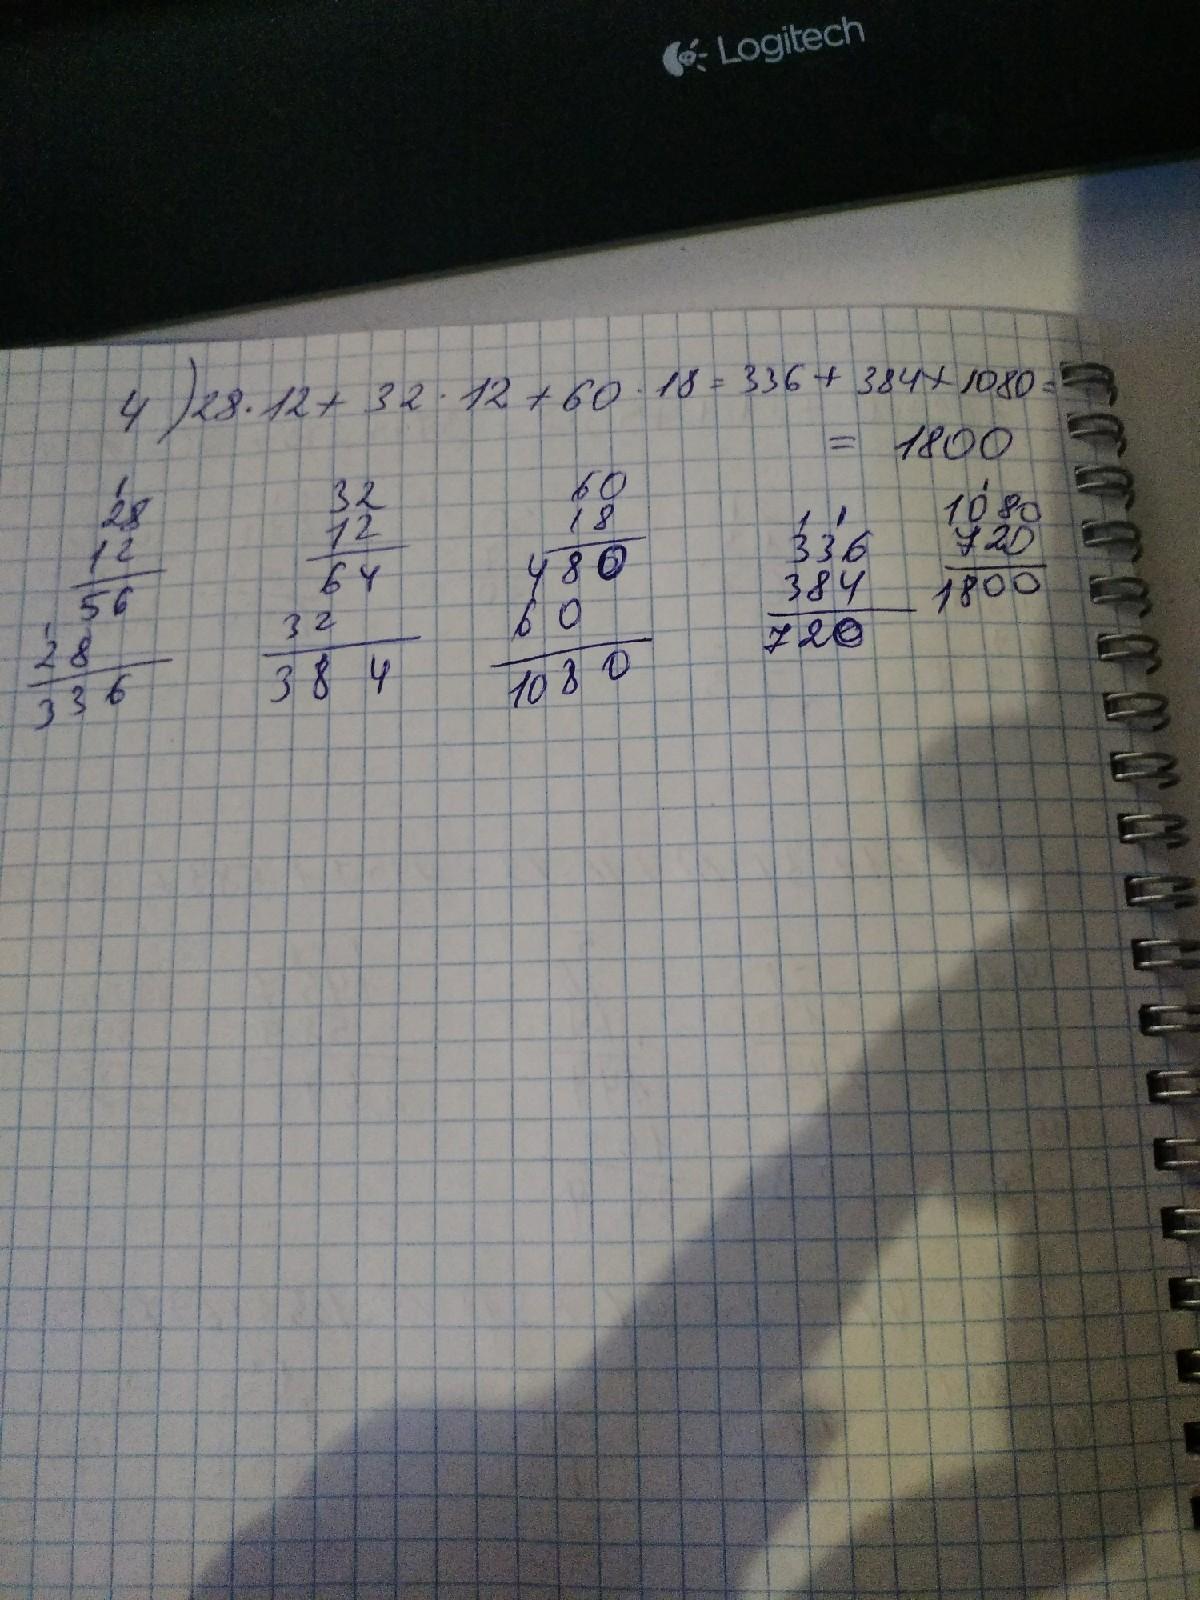 Logitech
4) 28 · 12 + 32 · 12 + 60 · 18 = 336 + 384 + 1080 =
= 1800
1
28
12
56
1
28
336
32
12
64
32
384
60
18
480
60
1080
1 1
336
384
720
1
1080
720
1800